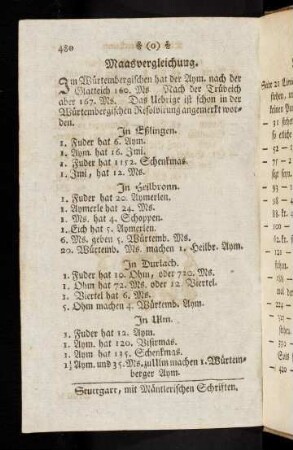 480 ❀ (o) ❀
Maasvergleichung.
Im Würtembergischen hat der Aym. nach der
Glatteich 160. Ms. Nach der Trübeich
aber 167. Ms. Das Uebrige ist schon in der
Würtembergischen Resolvirung angemerkt wor-
den.
In Eßlingen.
1. Fuder hat 6. Aym.
1. Aym. hat 16. Jmi.
1. Fuder hat 1152. Schenkmas.
1. Jmi, hat 12. Ms.
In Heilbronn.
1. Fuder hat 20. Aymerlen.
1. Aymerle hat 24. Ms.
1. Ms. hat 4. Schoppen.
1. Eich hat 5. Aymerlen.
6. Ms. geben 5. Würtemb. Ms.
20. Würtemb. Ms. machen 1. Heilbr. Aym.
In Durlach.
1. Fuder hat 10. Ohm, oder 720. Ms.
1. Ohm hat 72. Ms. oder 12. Viertel.
1. Viertel hat 6. Ms.
5. Ohm machen 4. Würtemb. Aym.
In Ulm.
1. Fuder hat 12. Aym.
1. Aym hat 120. Visirmas.
1. Aym hat 135. Schenkmas.
1½ Aym. und 35. Ms. zu Ulm machen 1. Würtem-
berger Aym.
Stuttgart, mit Mäntlerischen Schriften.